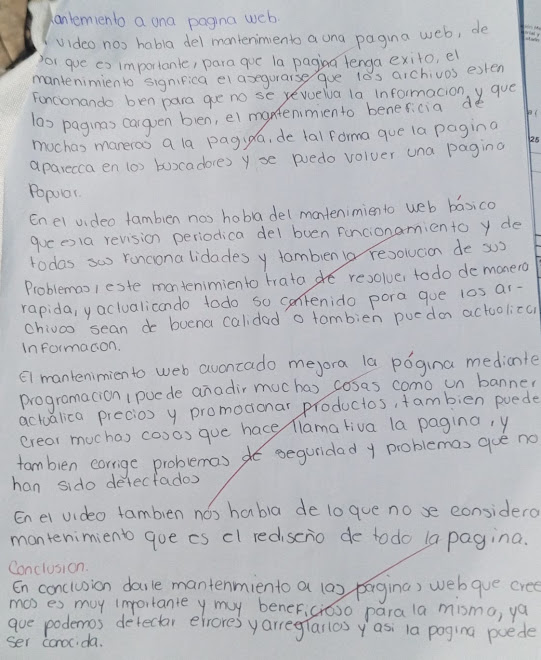 Mantemiento a una pagina web.
Video nos habla del mantenimiento a una pagina web, de
por que es importante, para que la pagina tenga exito, el
mantenimiento significa el asegurarse que los archivos esten
Funcionando bien para que no se revuelva la informacion, y que
las paginas carguen bien, el mantenimiento beneficia de
muchas maneras a la pagina, de tal forma que la pagina
aparezca en los buscadores y se puedo volver una pagina
Popular.
En el video tambien nos habla del mantenimiento web básico
que es la revision periodica del buen funcionamiento y de
todas sus funcionalidades y tambien la resolucion de sus
Problemas, este mantenimiento trata de resolver todo de manera
rapida, y actualicando todo su contenido para que los ar-
chivos sean de buena calidad o tambien puedan actualizar
informacion.
El mantenimiento web avanzado mejora la página mediante
programacion, puede añadir muchas cosas como un banner
actualica precios y promocionar productos, tambien puede
crear muchas cosas que hace llamativa la pagina, y
tambien corrige problemas de seguridad y problemas que no
han sido detectados
En el video tambien nos habla de lo que no se considera
mantenimiento que es el rediseño de todo la pagina.
Conclusion.
En conclusion darle mantenmiento a las paginas web que cree
mos es muy importante y muy beneficioso para la misma, ya
que podemos detectar errores y arreglarlos y asi la pagina puede
ser conocida.
25